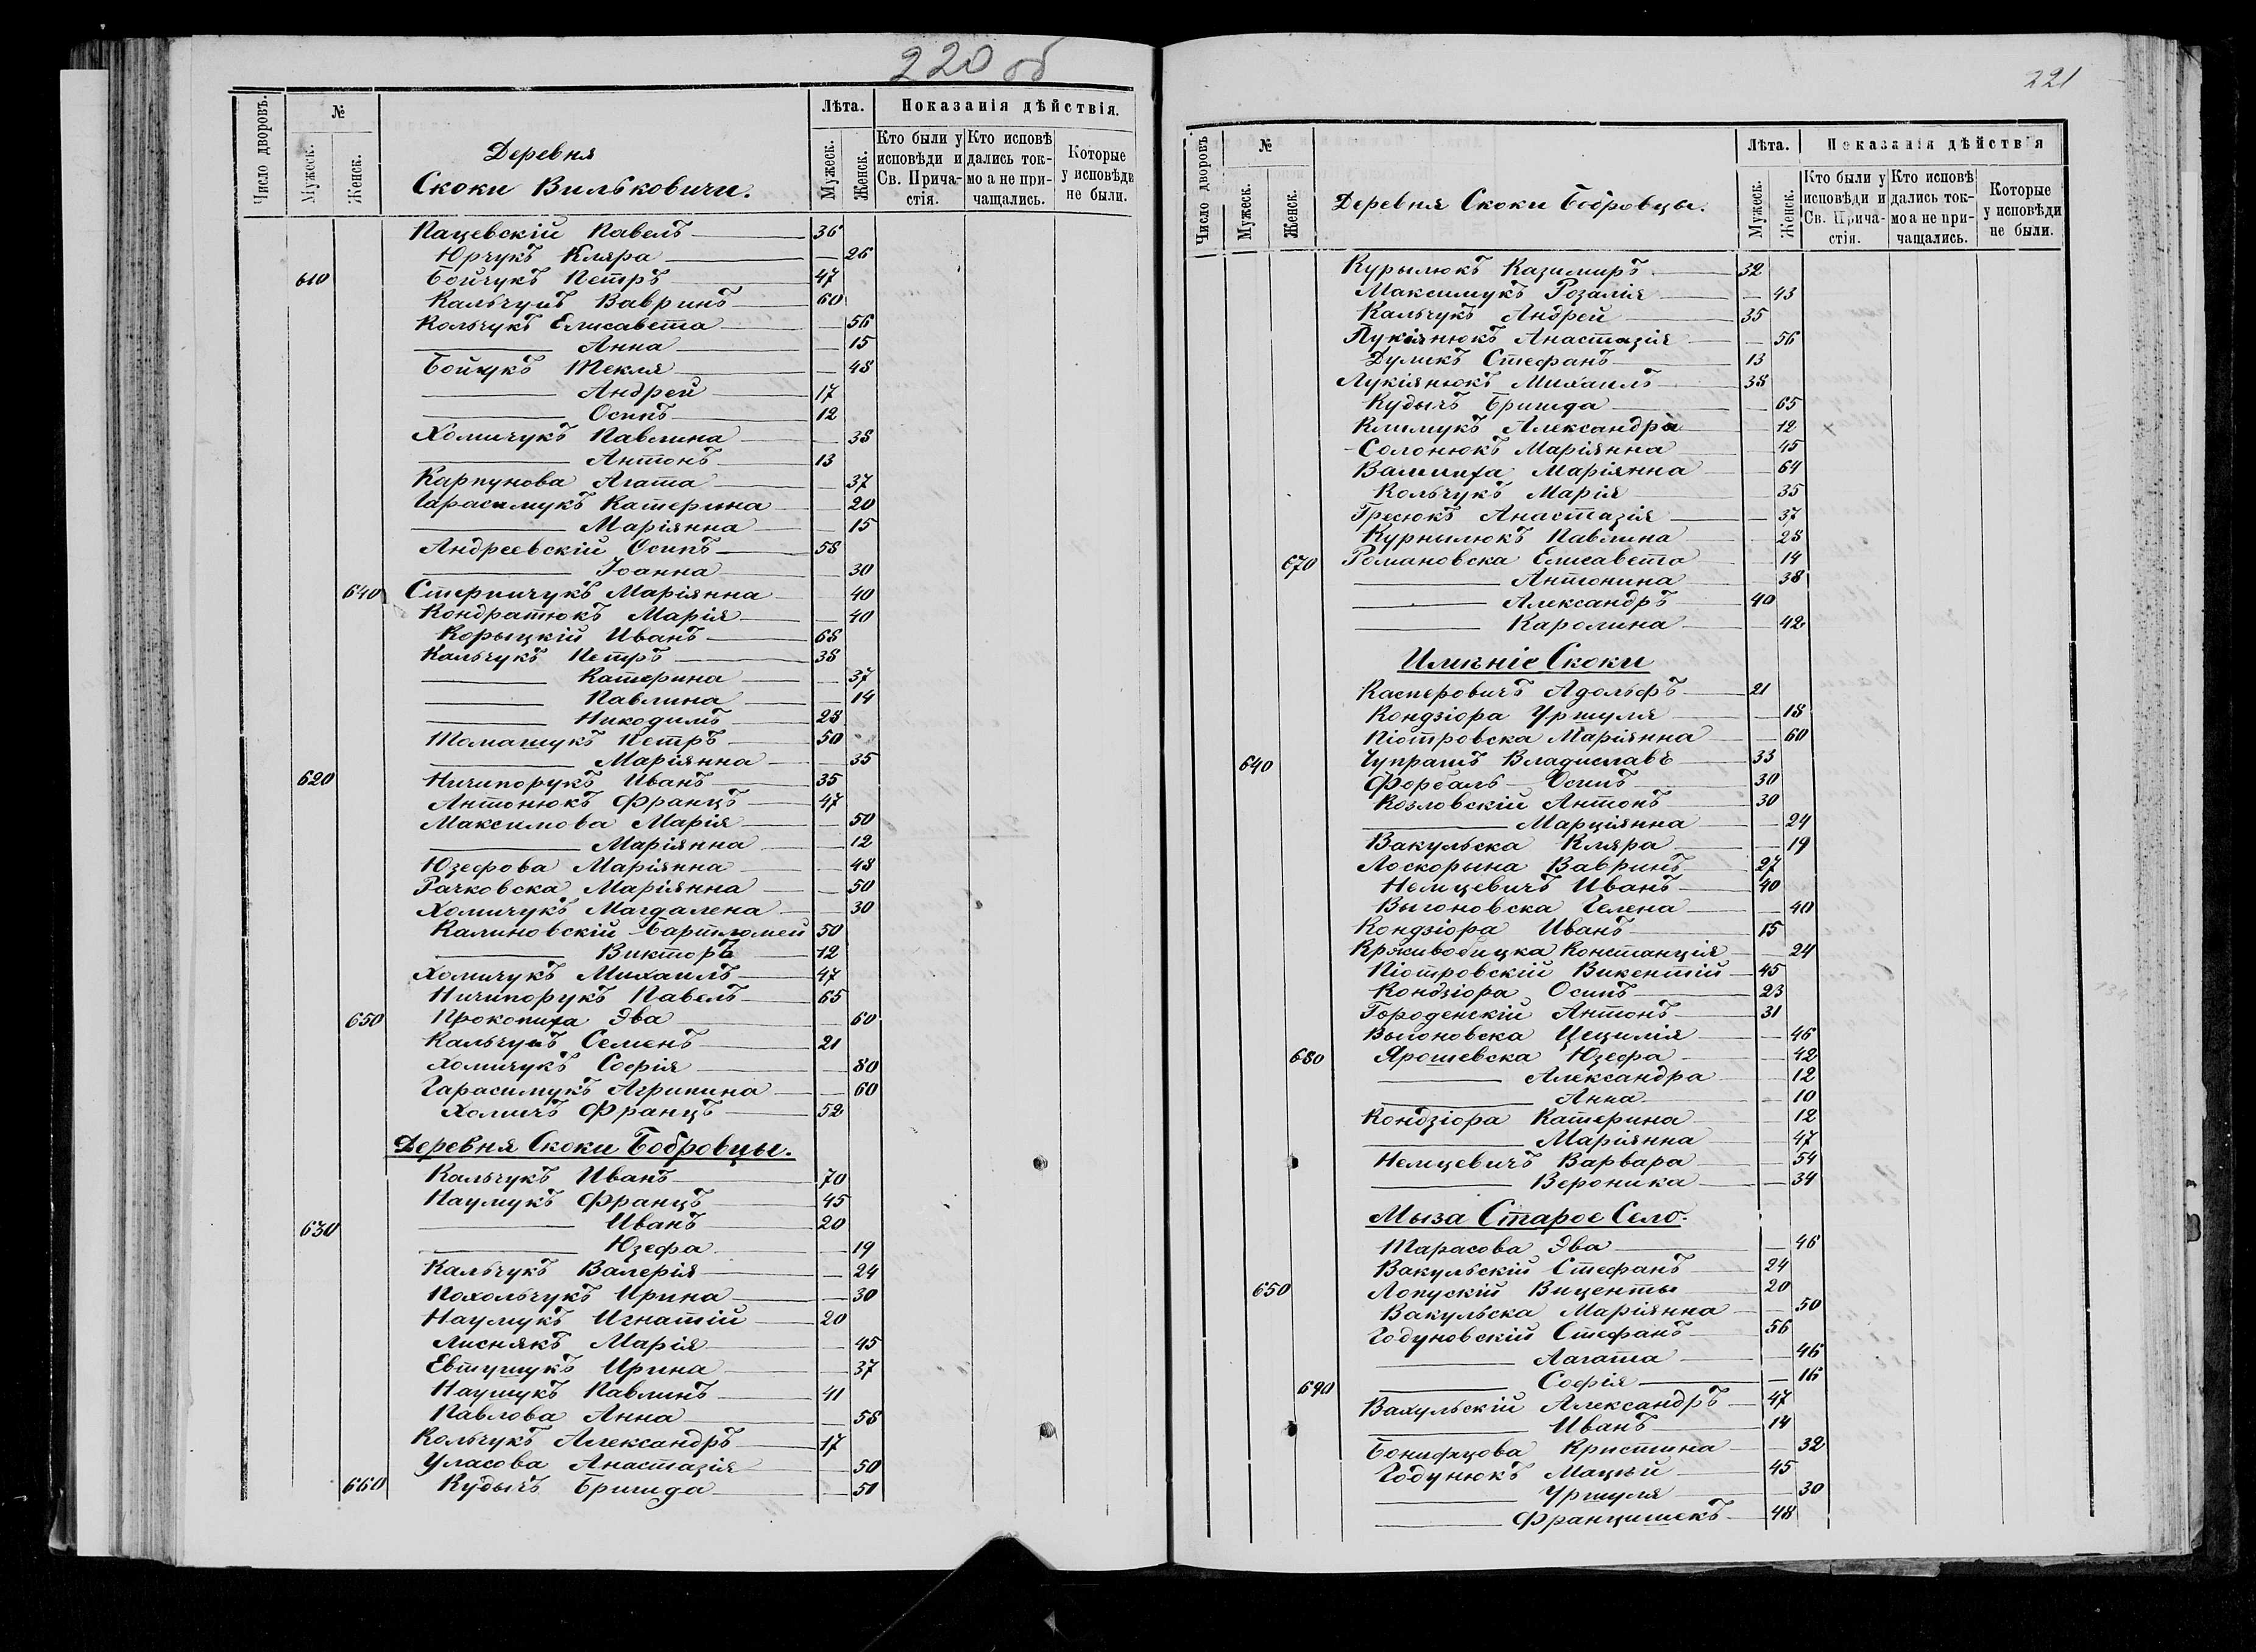 220 об
Число дворовъ.
№
Мужеск.
Женск.
Деревня
Скоки Вильковичи.
Лѣта.
Мужеск.
Женск.
Показанія дѣйствія.
Кто были у исповѣди и Св. Причастія.
Кто исповѣдались токмо а не причащались.
Которые у исповѣди не были.
Пацевскій Павелъ 36
Юрчукъ Кляра — 26
610 Бойчукъ Петръ 47
Кальчукъ Вавринъ 60
Кольчукъ Елисавета — 56
— Анна — 15
Бойчукъ Текля — 48
— Андрей 17
— Осипъ 12
Хомичукъ Павлина — 38
— Антонъ 13
Карпунова Агата — 37
Гарасимукъ Катерина — 20
— Маріянна — 15
Андреевскій Осипъ 58
— Іоанна — 30
640 Стерпичукъ Маріянна — 40
Кондратюкъ Марія — 40
Корыцкій Иванъ 68
Кальчукъ Петръ 38
— Катерина — 37
— Павлина — 14
— Никодимъ 28
Томашукъ Петръ 50
— Маріянна — 35
620 Ничипорукъ Иванъ 35
Антонюкъ Францъ 47
Максимова Марія — 50
— Маріянна — 12
Юзефова Маріянна — 48
Рачковска Маріянна — 50
Хомичукъ Магдалена — 30
Калиновскій Бартломей 50
— Викторъ 12
Хомичукъ Михаилъ 47
Ничипорукъ Павелъ 65
650 Прокопиха Эва — 60
Кальчукъ Семенъ 21
Хомичукъ Софія — 80
Гарасимукъ Агрипина — 60
Хомичъ Францъ 52
Деревня Скоки Бобровцы.
Кальчукъ Иванъ 70
Наумукъ Францъ 45
630 — Иванъ 20
— Юзефа — 19
Кальчукъ Валерія — 24
Похольчукъ Ирина — 30
Наумукъ Игнатій 20
Лиснякъ Марія — 45
Евтушукъ Ирина — 37
Наумукъ Павлинъ 41
Павлова Анна — 58
Кольчукъ Александръ 17
Уласова Анастазія — 50
660 Кудычъ Бригида — 51
221
Число дворовъ
№
Мужеск.
Женск.
Деревня Скоки Бобровцы.
Лѣта.
Мужеск.
Женск.
Показанія дѣйствія
Кто были у исповѣди и Св. Причастія.
Кто исповѣдались токмо а не причащались.
Которые у исповѣди не были.
Курылюкъ Казимиръ 32
Максимукъ Розалія — 43
Кальчукъ Андрей 35
Лукіянюкъ Анастазія — 56
Думикъ Стефанъ 13
Лукіянюкъ Михаилъ 38
Кудычъ Бригида — 65
Климукъ Александра — 12 ×
Солонюкъ Маріянна — 45
Вашиха Маріянна — 64
Кольчукъ Марія — 35
Гресюкъ Анастазія — 37
Курнылюкъ Павлина — 28
670 Романовска Елисавета — 14
— Антонина — 38
— Александръ 40
— Каролина — 42
Имѣніе Скоки
Касперовичъ Адольфъ 21
Кондзіора Уршуля — 18
Піотровска Маріянна — 60
640 Чупрашъ Владиславъ 33
Форбаль Осипъ 30
Козловскій Антонъ 30
— Марціянна — 24
Вакульска Кляра — 19
Лоскорына Вавринъ 27
Немцевичъ Иванъ 40
Выгоновска Гелена — 40
Кондзіора Иванъ 15
Крживобицка Констанція — 24
Піотровскій Викентій 45
Кондзіора Осипъ 23
Городенскій Антонъ 31
Выгоновска Цецилія — 46
680 Ярошевска Юзефа — 42
— Александра — 12
— Анна — 10
Кондзіора Катерина — 12
— Маріянна — 47
Немцевичъ Варвара — 54
— Вероника — 34
Мыза Старое Село.
Тарасова Эва — 46
Вакульскій Стефанъ 24
650 Лопускій Виценты 20
Вакульска Маріянна — 50
Годуновскій Стефанъ 56
— Агата — 46
690 — Софія — 16
Вакульскій Александръ 47
— Иванъ 14
Бонифацова Кристина — 32
Годунюкъ Мацѣй 45
— Уршуля — 30
— Францишекъ 48